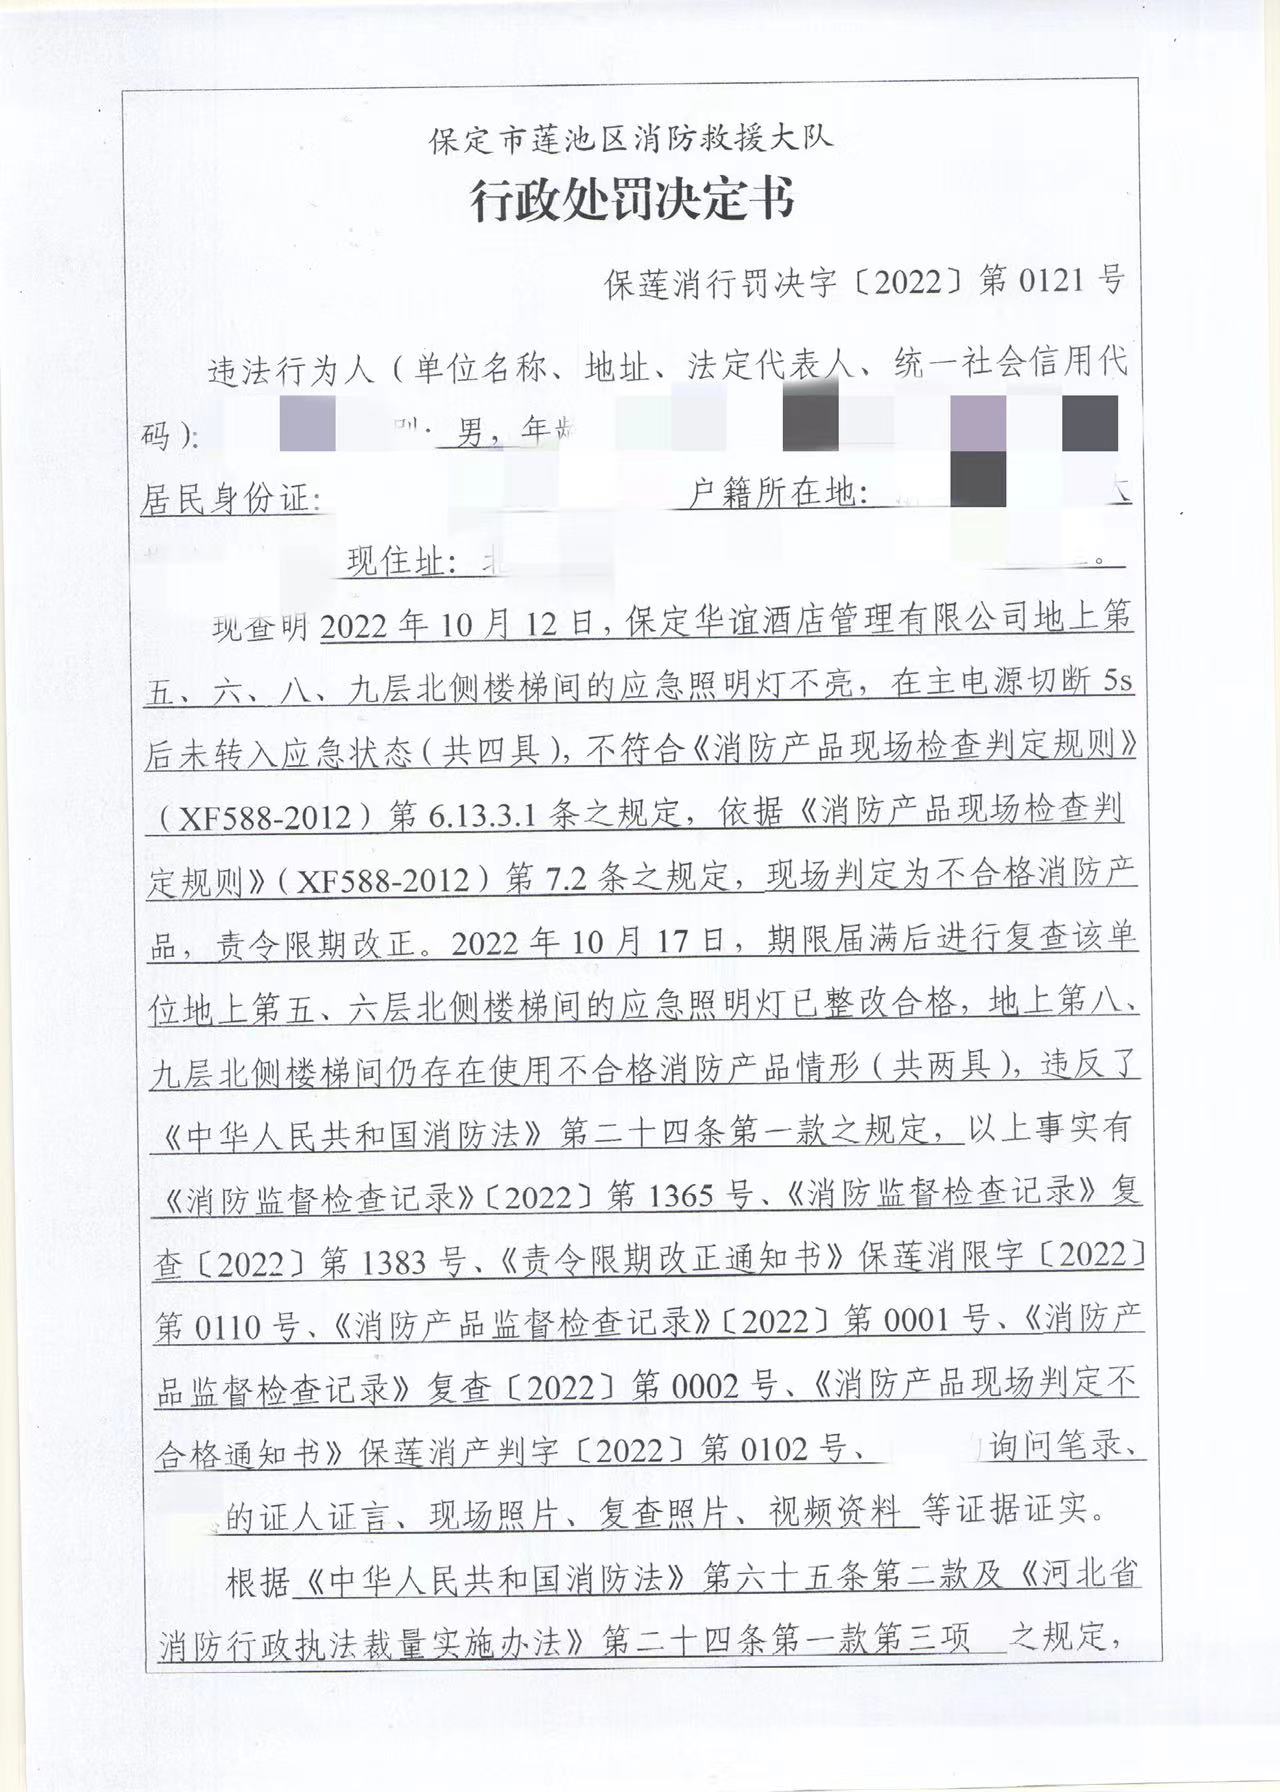 保定市莲池区消防救援大队
行政处罚决定书
保莲消行罚决字〔2022〕第 0121 号
违法行为人（单位名称、地址、法定代表人、统一社会信用代
码）： 男，年龄
居民身份证： 户籍所在地：
现住址：
现查明 2022 年 10 月 12 日，保定华谊酒店管理有限公司地上第
五、六、八、九层北侧楼梯间的应急照明灯不亮，在主电源切断 5s
后未转入应急状态（共四具），不符合《消防产品现场检查判定规则》
（XF588-2012）第 6.13.3.1 条之规定，依据《消防产品现场检查判
定规则》（XF588-2012）第 7.2 条之规定，现场判定为不合格消防产
品，责令限期改正。2022 年 10 月 17 日，期限届满后进行复查该单
位地上第五、六层北侧楼梯间的应急照明灯已整改合格，地上第八、
九层北侧楼梯间仍存在使用不合格消防产品情形（共两具），违反了
《中华人民共和国消防法》第二十四条第一款之规定，以上事实有
《消防监督检查记录》〔2022〕第 1365 号、《消防监督检查记录》复
查〔2022〕第 1383 号、《责令限期改正通知书》保莲消限字〔2022〕
第 0110 号、《消防产品监督检查记录》〔2022〕第 0001 号、《消防产
品监督检查记录》复查〔2022〕第 0002 号、《消防产品现场判定不
合格通知书》保莲消产判字〔2022〕第 0102 号、 询问笔录、
的证人证言、现场照片、复查照片、视频资料 等证据证实。
根据《中华人民共和国消防法》第六十五条第二款及《河北省
消防行政执法裁量实施办法》第二十四条第一款第三项 之规定，